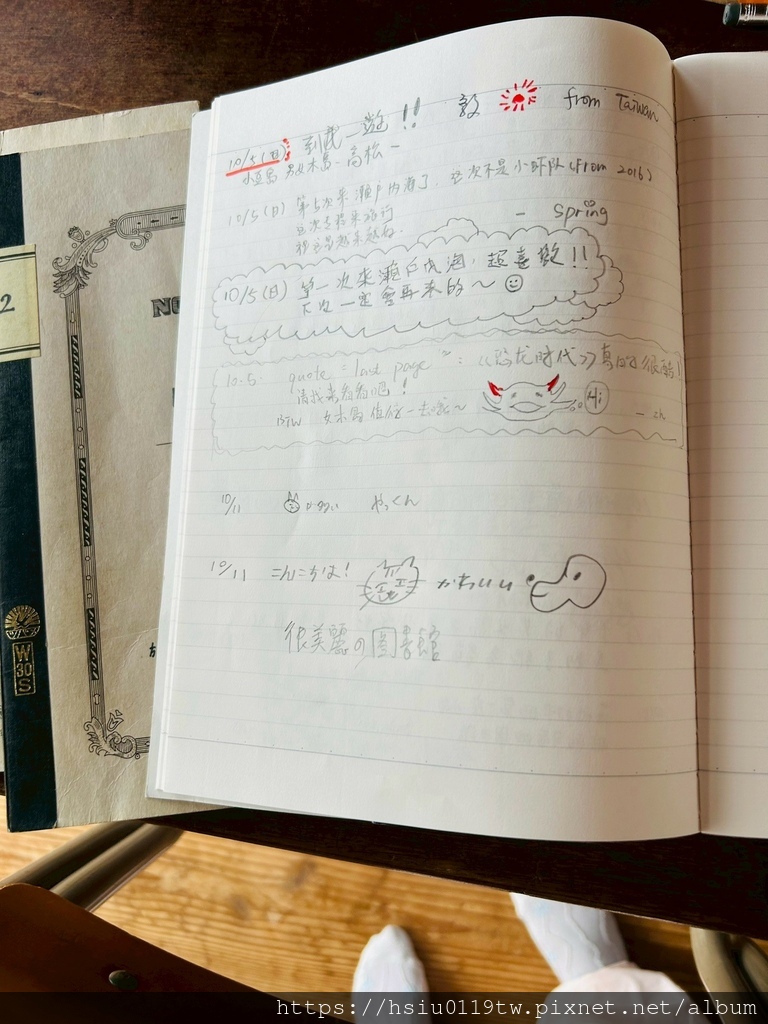 10/5(日) 到此一遊!! 敦 from Taiwan
小豆島 男女木島、高松 -
10/5(日) 第5次来瀬戸内海了, 这次不是小豆队(From 2016)
这次
- spring
10/5(日) 第一次來瀨戶內海, 超喜歡!!
下次一定會再來的~
10.5. quote "last page": 《恐龙时代》真的很酷!
请找来看看吧!
BTW 女木岛值得一去哦~ Hi - zh
10/11 かわいい やっくん
10/11 こんにちは! かわいい
很美麗の圖書館
2
NO
W
30
S
https://hsiu0119tw.pixnet.net/album